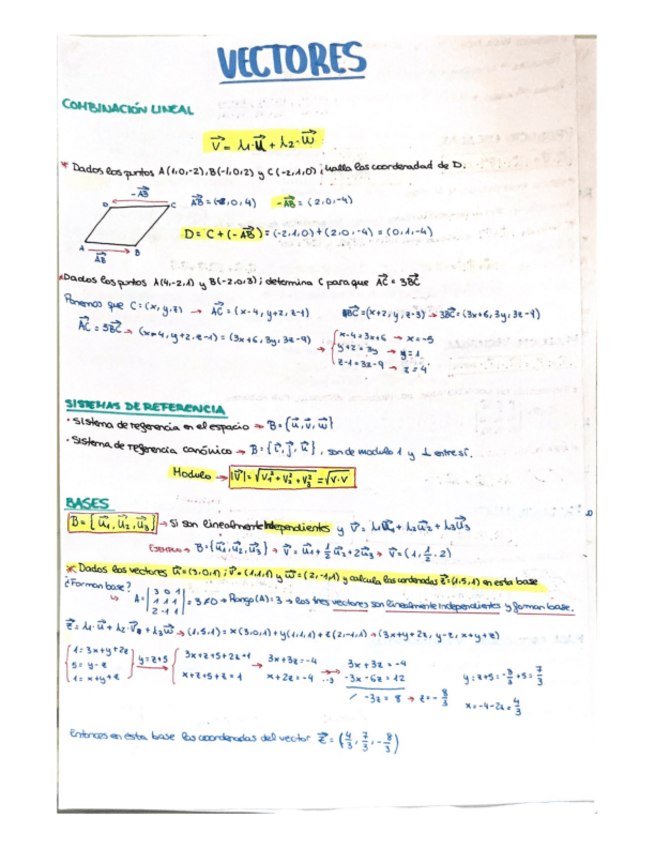 VECTORES
COMBINACIÓN LINEAL
V = λ1·u + λ2·w
* Dados los puntos A(1,0,-2), B(-1,0,2) y C(-2,1,0) ; Halla las coordenadad de D.
-AB
D C AB = (-2,0,4) -AB = (2,0,-4)
D = C + (-AB) = (-2,1,0) + (2,0,-4) = (0,1,-4)
A B
AB
* Dados los puntos A(4,-2,1) y B(-2,0,3) ; determina C para que AC = 3BC
Ponemos que C = (x,y,z) → AC = (x-4, y+2, z-1) BC = (x+2, y, z-3) → 3BC = (3x+6, 3y, 3z-9)
AC = 3BC → (x-4, y+2, z-1) = (3x+6, 3y, 3z-9) → x-4=3x+6 → x=-5
y+2=3y → y=1
z-1=3z-9 → z=4
SISTEMAS DE REFERENCIA
· Sistema de referencia en el espacio → B = {u, v, w}
· Sistema de referencia canónico → B = {i, j, k}, son de modulo 1 y ⊥ entre sí.
Modulo → |V| = √V1²+V2²+V3² = √V·V
BASES
B = {u1, u2, u3} → Si son linealmente independientes y V = λ1u1 + λ2u2 + λ3u3
EJEMPLO → B = {u1, u2, u3} → V = u1 + 1/2 u2 + 2u3 → V = (1, 1/2, 2)
* Dados los vectores u = (3,0,1) ; V = (1,1,1) y w = (2,-1,1) y calcula las cordenadas z = (1,5,1) en esta base
¿Forman base?
↳ A = |3 0 1| |1 1 1| |2 -1 1| = 3 ≠ 0 → Rango(A) = 3 → los tres vectores son linealmente independientes y forman base.
z = λ1·u + λ2·v + λ3w → (1,5,1) = x(3,0,1) + y(1,1,1) + z(2,-1,1) → (3x+y+2z, y-z, x+y+z)
1=3x+y+2z y=z+5 3x+z+5+2z=1 → 3x+3z=-4 3x+3z=-4
5=y-z x+z+5+z=1 x+2z=-4 → -3x-6z=12 y=z+5=-8/3+5=7/3
1=x+y+z -3z=8 → z=-8/3 x=-4-2z=4/3
Entonces en esta base las coordenadas del vector z = (4/3, 7/3, -8/3)